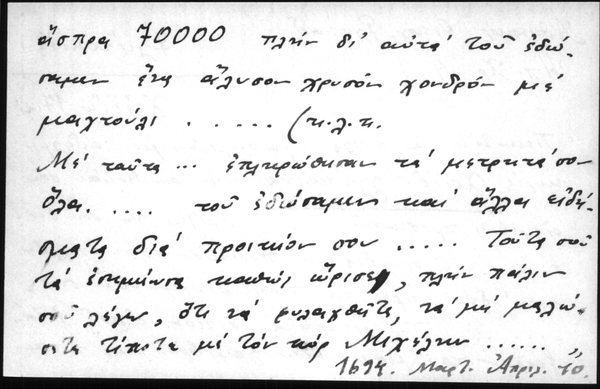 ἄσπρα 70000 πλὴν δι' αὐτὰ τοῦ ἐδώ-
σαμεν ἕνα ἄλυσον χρυσὸν χονδρὸν μὲ
μαχτούλι . . . . . (κ.λ.κ.
Μὲ ταῦτα ... ἐπληρώθησαν τὰ μετρητά σου
ὅλα. .... τοῦ ἐδώσαμεν καὶ ἄλλα εἰδί-
σματα διὰ προικιόν σου ..... Τοῦτα σοῦ
τὰ ἐσημείωσα καθὼς ὥρισες, πλὴν πάλιν
σοῦ λέγω, ὅτι νὰ φυλαχθῆτε, νὰ μὴ μαλώ-
σετε τίποτα μὲ τὸν κὺρ Μιχέλην ...... "
1694. Μαρτ. Ἀπριλ. 10.